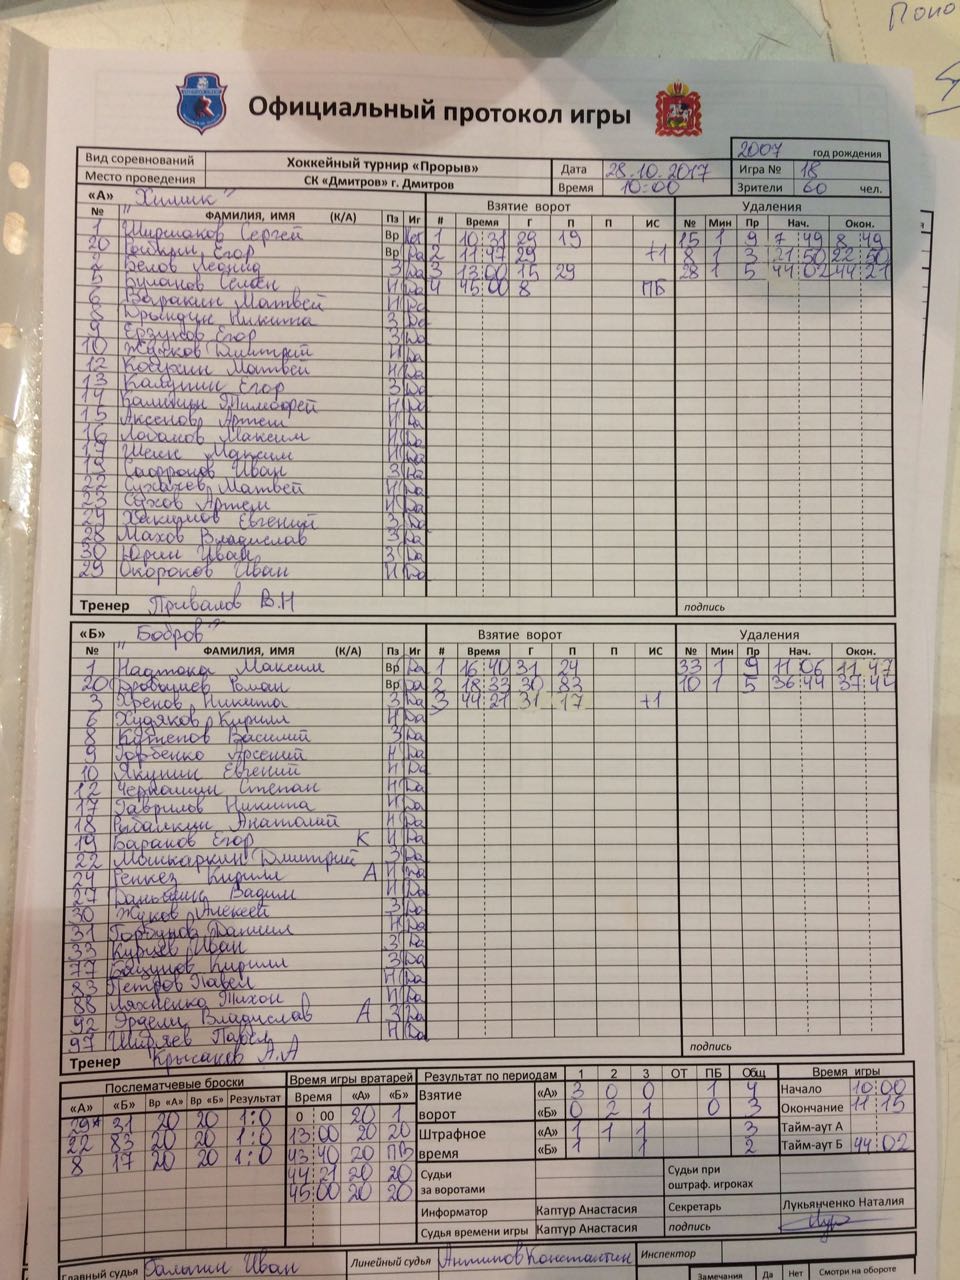 Официальный протокол игры
2007 год рождения
Вид соревнований Хоккейный турнир «Прорыв» Дата 28.10.2017 Игра № 18
Место проведения СК «Дмитров» г. Дмитров Время 10:00 Зрители 60 чел.
«А» "Химик" Взятие ворот Удаления
№ ФАМИЛИЯ, ИМЯ (К/А) Пз Иг # Время Г П П ИС № Мин Пр Нач. Окон.
1 Ширшаков Сергей Вр 1 10:31 29 19 15 1 9 7:49 8:49
20 Егор Вр Да 2 11:47 29 +1 8 1 3 21:50 22:50
2 Белов Леонид З Да 3 13:00 15 29 28 1 5 44:02 44:21
5 Буланов Семен Н Да 4 45:00 8 ПБ
6 Варакин Матвей Н Да
8 Никита З Да
9 Егор З Да
10 Дмитрий Н Да
12 Матвей Н Да
13 Калинин Егор З Да
14 Калинин Тимофей Н Да
15 Аксенов Артем Н Да
16 Лобанов Максим Н Да
17 Шеин Максим Н Да
19 Сафронов Иван З
22 Сухачев Матвей Н Да
23 Сухов Артем Н Да
29 Хакимов Евгений З Да
28 Махов Владислав З Да
30 Юрин Иван З Да
29 Окороков Иван Н Да
Тренер Привалов В.Н подпись
«Б» "Бобров" Взятие ворот Удаления
№ ФАМИЛИЯ, ИМЯ (К/А) Пз Иг # Время Г П П ИС № Мин Пр Нач. Окон.
1 Надтока Максим Вр Да 1 16:40 31 24 33 1 9 11:06 11:47
20 Роман Вр Да 2 18:33 30 83 10 1 5 36:44 37:44
3 Хренов Никита З Да 3 44:21 31 17 +1
6 Худяков Кирилл Н Да
8 Кутепов Василий З Да
9 Горбенко Арсений Н Да
10 Якунин Евгений Н Да
12 Степан Н Да
17 Гаврилов Никита Н Да
18 Рыбалкин Анатолий Н Да
19 Баранов Егор К Н Да
22 Мошкаркин Дмитрий З Да
24 Кирилл А Н Да
27 Вадим Н Да
30 Жуков Алексей З Да
31 Горбунов Даниил Н Да
33 Иван З Да
77 Кирилл З Да
83 Петров Павел Н Да
88 Ляхненко Тихон Н Да
92 Эрдели Владислав А З Да
97 Ширяев Павел Н Да
Тренер Крысанов А.А подпись
Послематчевые броски Время игры вратарей Результат по периодам 1 2 3 ОТ ПБ Общ Время игры
«А» «Б» Вр «А» Вр «Б» Результат Время «А» «Б» Взятие «А» 3 0 0 1 4 Начало 10:00
29 31 20 20 1:0 0 00 20 1 ворот «Б» 0 2 1 0 3 Окончание 11:15
22 83 20 20 1:0 13:00 20 20 Штрафное «А» 1 1 1 3 Тайм-аут А
8 17 20 20 1:0 43:40 20 ПВ время «Б» 1 1 2 Тайм-аут Б 44:02
44:21 20 20 Судьи Судьи при
45:00 20 20 за воротами оштраф. игроках
Информатор Каптур Анастасия Секретарь Лукьянченко Наталия
Судья времени игры Каптур Анастасия подпись
Главный судья Галыгин Иван Линейный судья Антипов Константин Инспектор
Замечания Да Нет Смотри на обороте